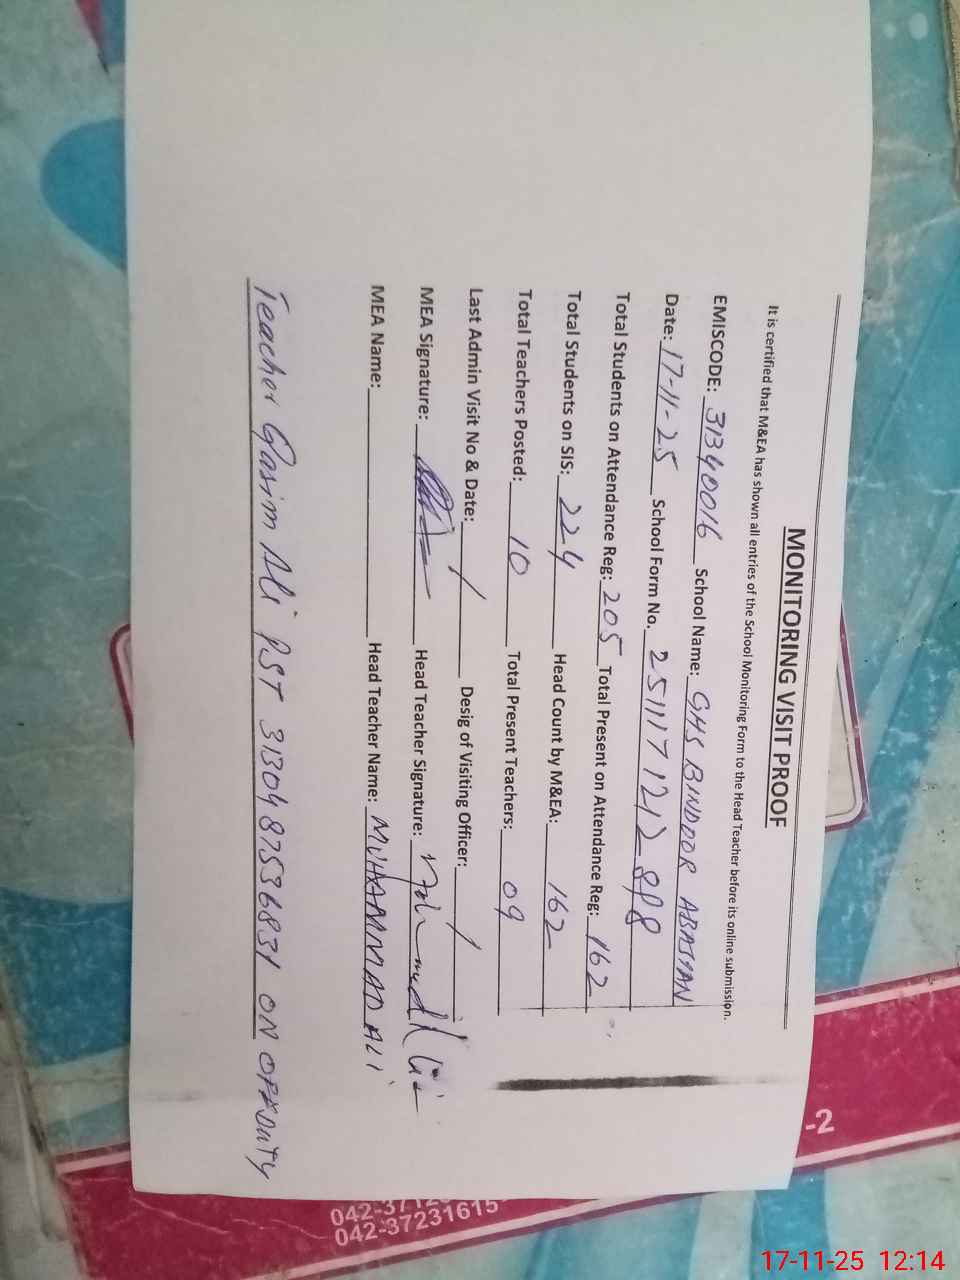 MONITORING VISIT PROOF
It is certified that M&EA has shown all entries of the School Monitoring Form to the Head Teacher before its online submission.
EMISCODE: 31340016 School Name: GHS BINDOOR ABASIAN
Date: 17-11-25 School Form No. 2511171212898
Total Students on Attendance Reg: 205 Total Present on Attendance Reg: 162
Total Students on SIS: 224 Head Count by M&EA: 162
Total Teachers Posted: 10 Total Present Teachers: 09
Last Admin Visit No & Date: / Desig of Visiting Officer: /
MEA Signature: Head Teacher Signature:
MEA Name: Head Teacher Name: MUHAMMAD ALI
Teacher Qasim Ali PST 3130487536831 ON DUTY
-2
042-37231615
17-11-25 12:14